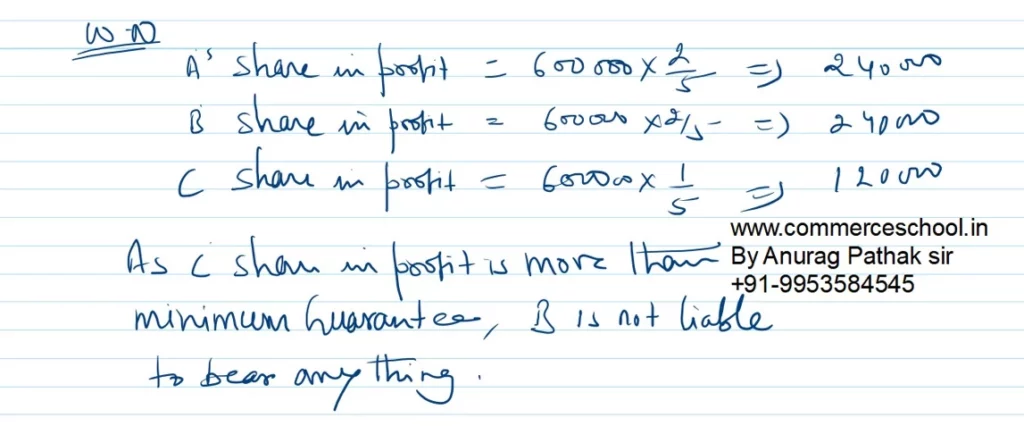 W.N
A's share in profit = 600000 × 2/5 => 240000
B share in profit = 600000 × 2/5 => 240000
C share in profit = 600000 × 1/5 => 120000
www.commerceschool.in
As C share in profit is more than By Anurag Pathak sir
+91-9953584545
minimum Guarantee, B is not liable
to bear any thing.